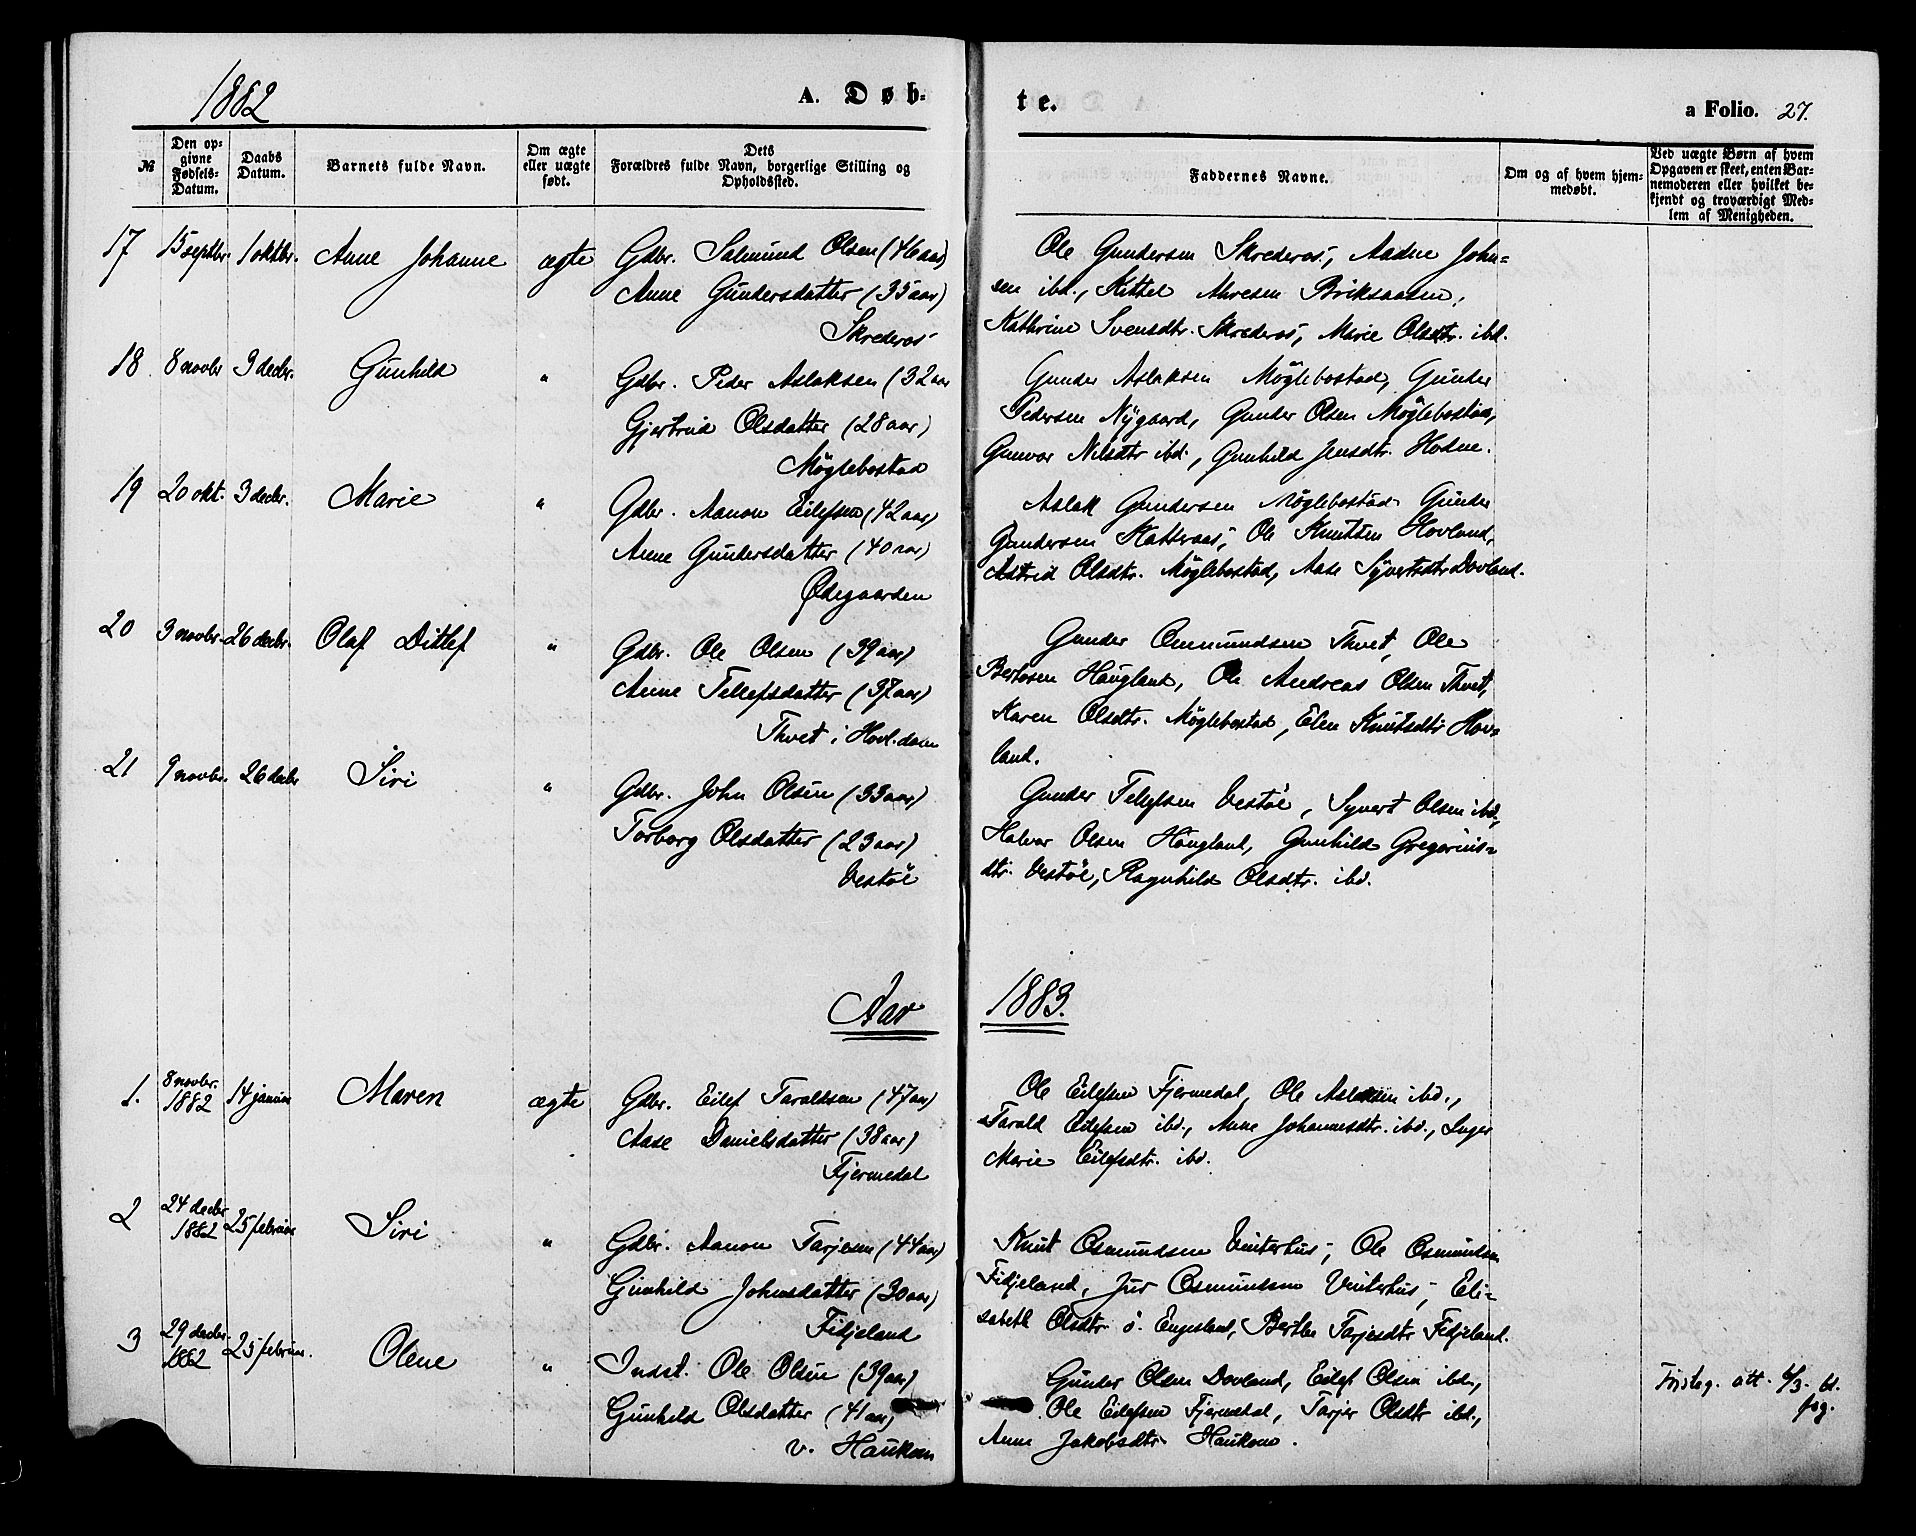 1882
A. Døb-
te.
a Folio. 27.
№
Den op-
givne
Fødsels-
Datum.
Daabs
Datum.
Barnets fulde Navn.
Om ægte
eller uægte
født.
Dets
Forældres fulde Navn, borgerlige Stilling og
Opholdssted.
Faddernes Navne.
Om og af hvem hjem-
medøbt.
Ved uægte Børn af hvem
Opgaven er skeet, enten Bar-
nemoderen eller hvilket be-
kjendt og troværdigt Med-
lem af Menigheden.
17 15 septbr. 1 oktbr. Anne Johanne ægte Gdbr. Salmund Olsen (46 aar)
Anne Gundersdatter (35 aar)
Skrederos
Ole Gundersen Skrederos, Aadne John-
sen ibd., Kittel Akresen Briksaasen,
Kathrine Svensdtr. Skrederos, Marie Olsdtr. ibd.
18 8 novbr 3 decbr. Gunhild " Gdbr. Peder Aslaksen (32 aar
Gjertrud Olsdatter (28 aar)
Møglebostad
Gunder Aslaksen Møglebostad, Gunder
Pedersen Nygaard, Gunder Olsen Møglebostad,
Gunvor Nilsdtr ibd., Gunhild Jensdtr. Hodne.
19 20 okt. 3 decbr. Marie " Gdbr. Aanon Eilefsen (42 aar)
Anne Gundersdatter (40 aar)
Ødegaarden
Aslak Gundersen Møglebostad Gunder
Gundersen Katteraas, Ole Knutsen Hovland,
Astrid Olsdtr. Møglebostad, Aase Syvertsdtr Dovland.
20 3 novbr. 26 decbr. Olaf Ditlef " Gdbr. Ole Olsen (39 aar)
Anne Tellefsdatter (37 aar)
Thvet i Hovl. dom
Gunder Ommundsen Thvet, Ole
Bertosen Haugland, Ole Andreas Olsen Thvet,
Karen Olsdtr. Møglebostad, Elen Knutsdtr Hov-
land.
21 9 novbr. 26 decbr Siri " Gdbr. John Olsen (33 aar)
Torborg Olsdatter (23 aar)
Vestøl
Gunder Tellefsen Vestøl, Syvert Olsen ibd.,
Halvor Olsen Haugland, Gunhild Gregorius-
dtr. Vestøl, Ragnhild Olsdtr. ibd.
Aar 1883.
1. 8 novbr.
1882 14 januar Maren ægte Gdbr. Eilef Taraldsen (47 aar)
Aase Danielsdatter (38 aar)
Fjermedal
Ole Eilefsen Fjermedal, Ole Aslaksen ibd.,
Tarald Eilefsen ibd., Anne Johannesdtr. ibd., Inger
Marie Eilefsdtr. ibd.
2 24 decbr
1882 25 februar Siri " Gdbr. Aanon Tarjesen (44 aar)
Gunhild Johnsdatter (30 aar)
Fidjeland
Knut Osmundsen Vinterhus, Ole Osmundsen
Fidjeland, Jur Osmundsen Vinterhus, Eli-
sabeth Olsdtr ö. Engesland, Berthe Tarjesdtr Fidjeland.
3 29 decbr.
1882 25 februar. Olene " Indst. Ole Olsen (39 aar)
Gunhild Olsdatter (41 aar)
v. Haukom
Gunder Olsen Dovland, Eilef Olsen ibd.,
Ole Eilefsen Fjermedal, Tarjer Olsdtr ibd.,
Anne Jakobsdtr Haukom.
att. 6/3